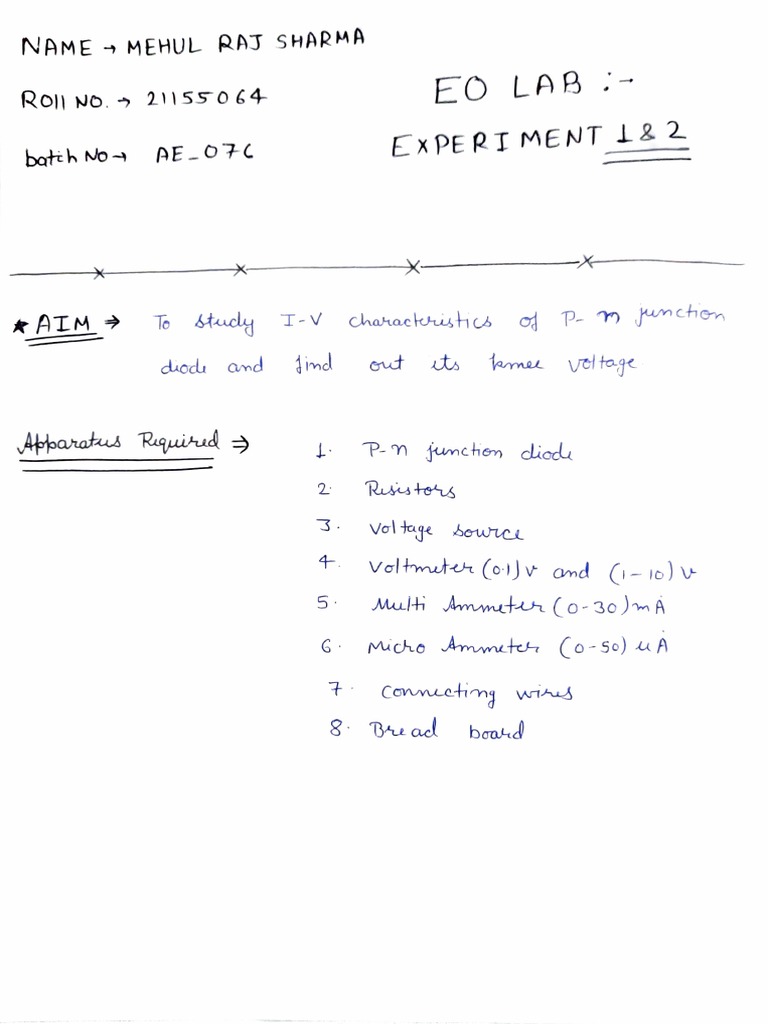 NAME → MEHUL RAJ SHARMA
ROll NO. → 21155064
batch No → AE_076
EO LAB :-
EXPERIMENT 1 & 2
★ AIM ⇒ To study I-V characteristics of P-n junction
diode and find out its knee voltage
Apparatus Required ⇒ 1. P-n junction diode
2. Resistors
3. Voltage source
4. Voltmeter (0.1) v and (1-10) v
5. Multi Ammeter (0-30) mA
6. Micro Ammeter (0-50) uA
7. Connecting wires
8. Bread board